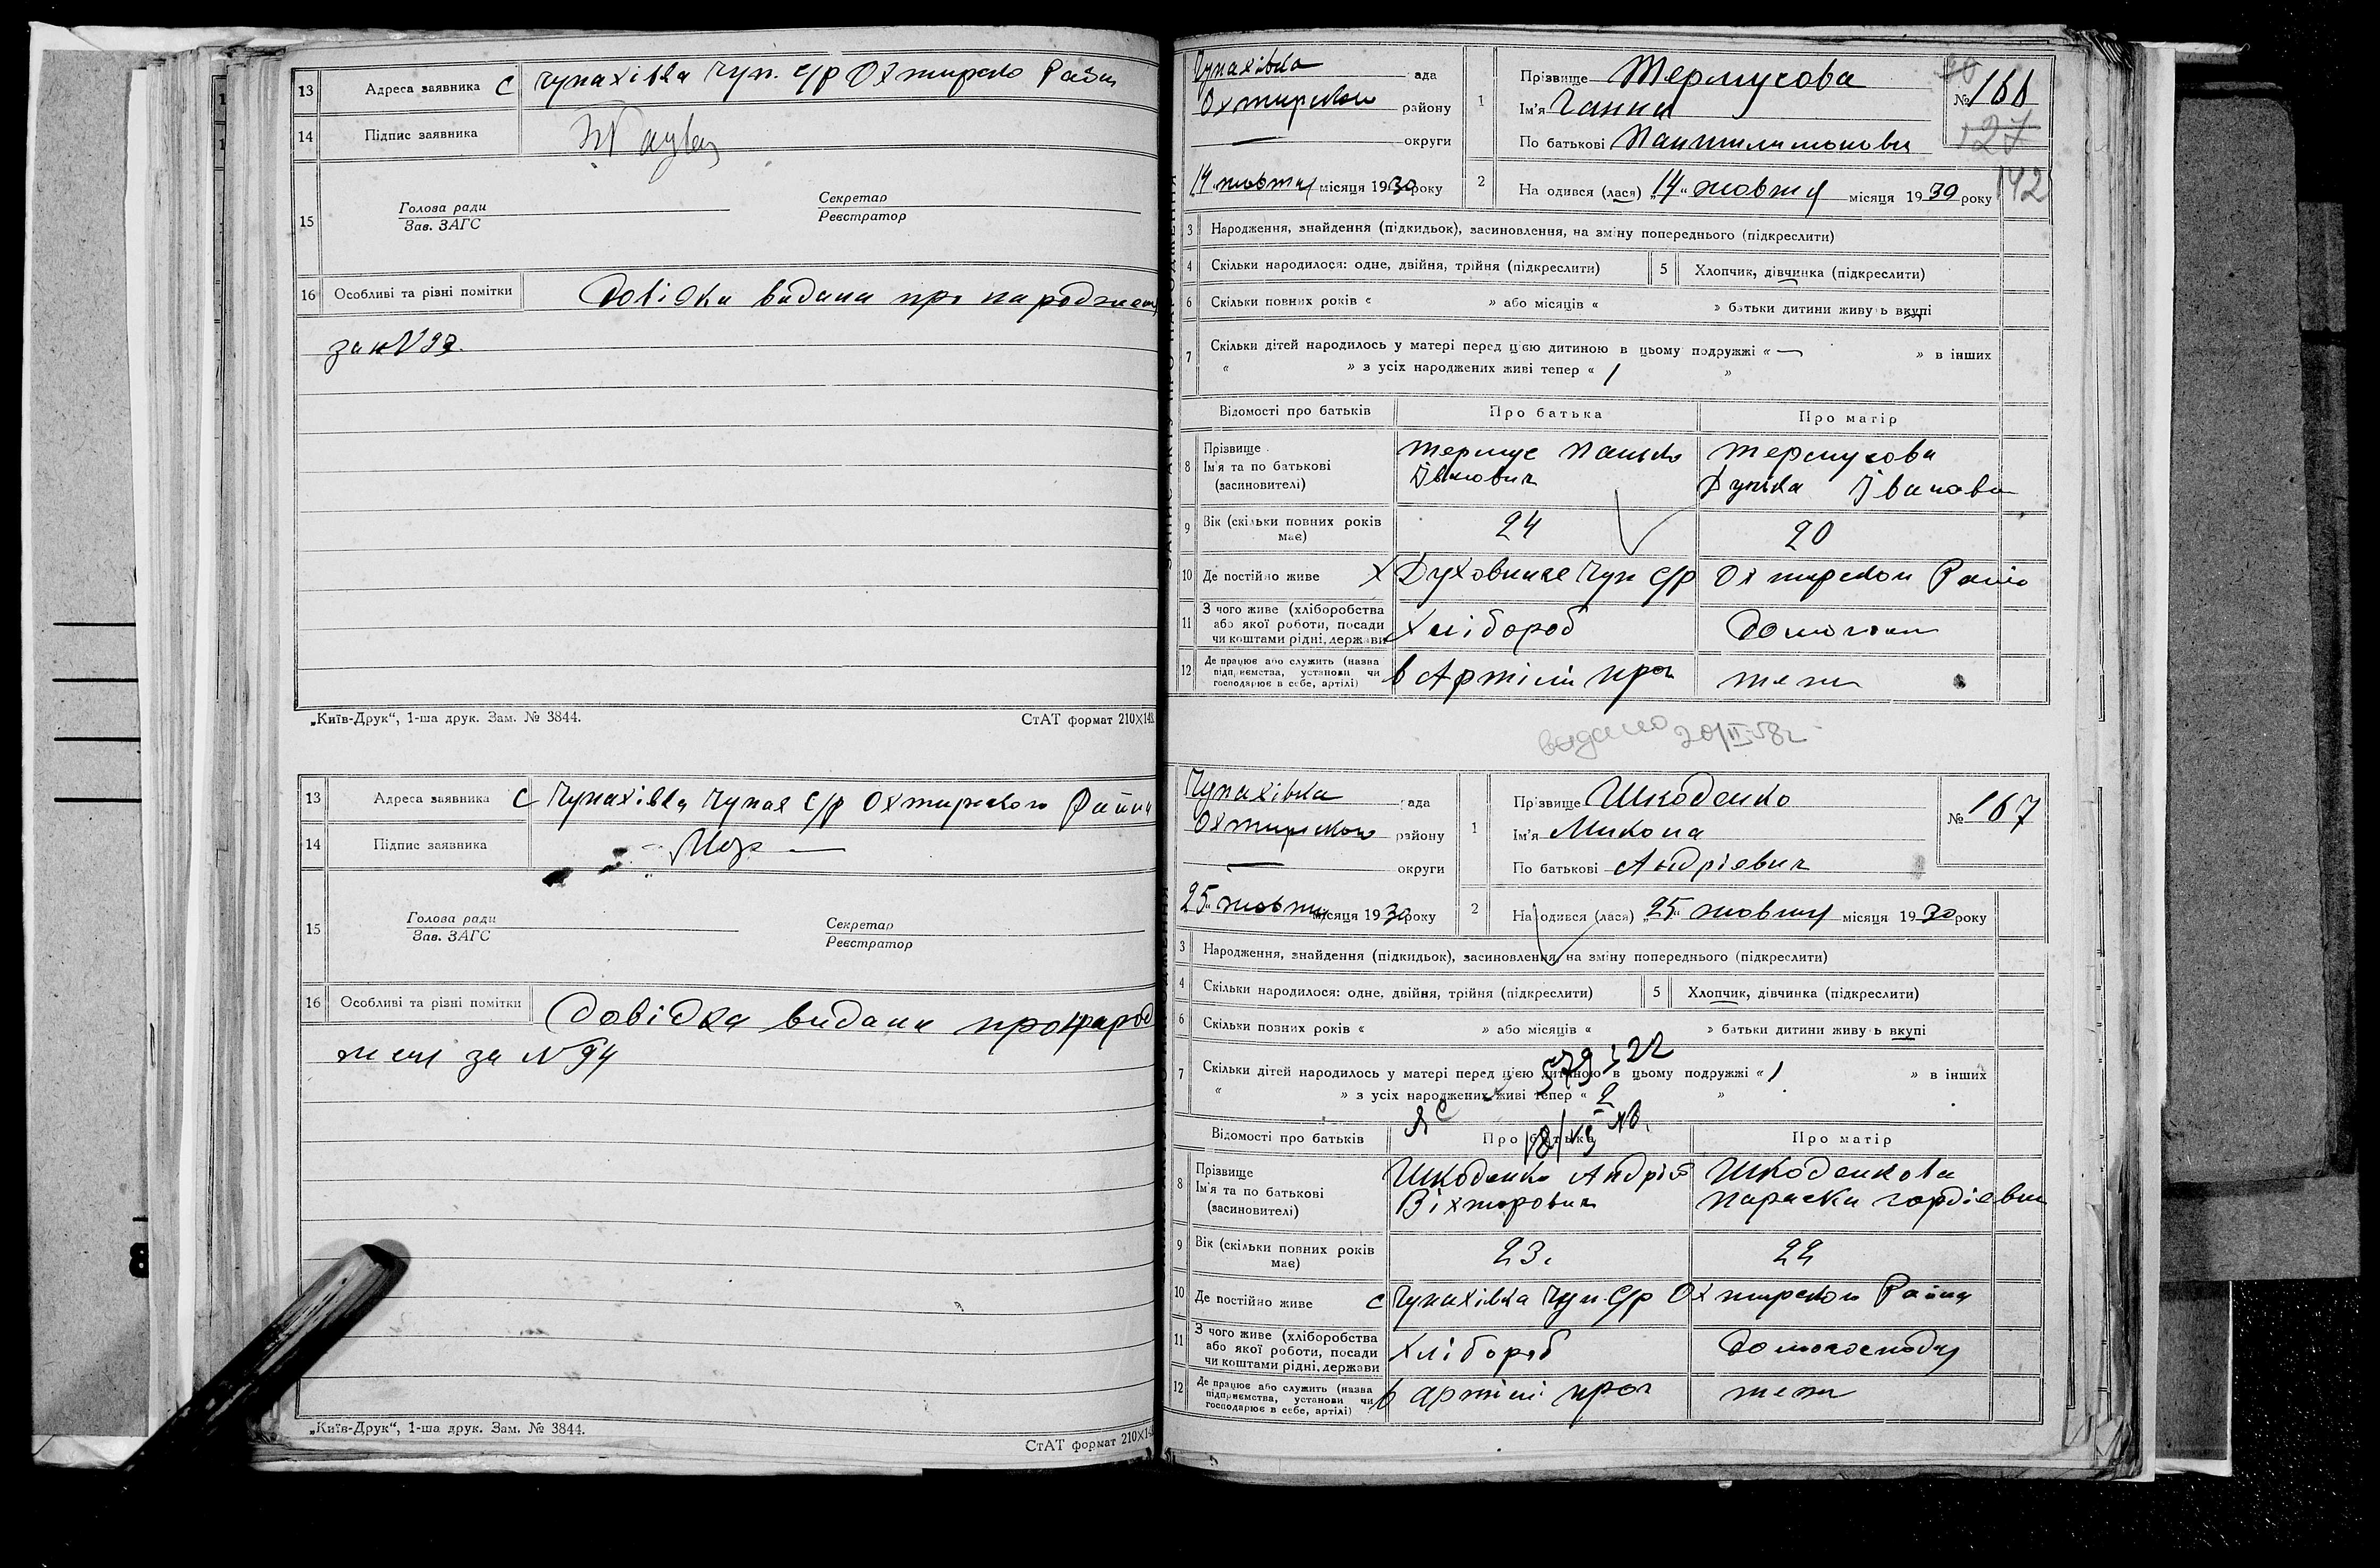 13 Адреса заявника С Чупахівка Чуп. С/р Охтирсько Району
14 Підпис заявника
15 Голова ради
Зав. ЗАГС
Секретар
Реєстратор
16 Особливі та різні помітки Довідка видана про народжен
за N 93.
„Київ-Друк“, 1-ша друк. Зам. № 3844. СтАТ формат 210X148
13 Адреса заявника С Чупахівка Чупах С/р Охтирського Району
14 Підпис заявника
15 Голова ради
Зав. ЗАГС
Секретар
Реєстратор
16 Особливі та різні помітки Довідка видана про народ
жен за N 94
„Київ-Друк“, 1-ша друк. Зам. № 3844.
СтАТ формат 210X148
Чупахівка рада
Охтирсько району
округи
14 жовтня місяця 1930 року
1 Прізвище Термусова
Ім'я Ганна
По батькові Пантилимоновн
№ 166
127
142
2 На одився (лася) „14“ жовтня місяця 1930 року
3 Народження, знайдення (підкидьок), засиновлення, на зміну попереднього (підкреслити)
4 Скільки народилося: одне, двійня, трійня (підкреслити) 5 Хлопчик, дівчинка (підкреслити)
6 Скільки повних років « » або місяців « » батьки дитини живу ь вкупі
7 Скільки дітей народилось у матері перед цією дитиною в цьому подружжі « — » в інших
« » з усіх народжених живі тепер « 1 »
Відомості про батьків Про батька Про матір
8 Прізвище
Ім'я та по батькові
(засиновителі)
Термус Панько
Іванович
Термусова
Дунька Іванова
9 Вік (скільки повних років
має)
24 20
10 Де постійно живе Х Духовниче Чуп С/р Охтирсько Райо
11 З чого живе (хліборобства
або якої роботи, посади
чи коштами рідні, держави
Хлібороб
12 Де працює або служить (назва
підприємства, установи чи
господарює в себе, артілі)
в Артілі
видано 20/II-58г
Чупахівка рада
Охтирсько району
округи
25 жовтня місяця 1930 року
1 Прізвище Шкоденко
Ім'я Микола
По батькові Андрієвич
№ 167
2 На одився (лася) „25“ жовтня місяця 1930 року
3 Народження, знайдення (підкидьок), засиновлення, на зміну попереднього (підкреслити)
4 Скільки народилося: одне, двійня, трійня (підкреслити) 5 Хлопчик, дівчинка (підкреслити)
6 Скільки повних років « » або місяців « » батьки дитини живу ь вкупі
7 Скільки дітей народилось у матері перед цією дитиною в цьому подружжі « 1 » в інших
« » з усіх народжених живі тепер « 2 »
Відомості про батьків Про батька Про матір
8 Прізвище
Ім'я та по батькові
(засиновителі)
Шкоденко Андрій
Віхторович
Шкоденкова
Параска гордіевн
9 Вік (скільки повних років
має)
23. 22
10 Де постійно живе С Чупахівка Чуп. С/р Охтирсько Району
11 З чого живе (хліборобства
або якої роботи, посади
чи коштами рідні, держави
Хлібороб Домогосподу
12 Де працює або служить (назва
підприємства, установи чи
господарює в себе, артілі)
в артілі